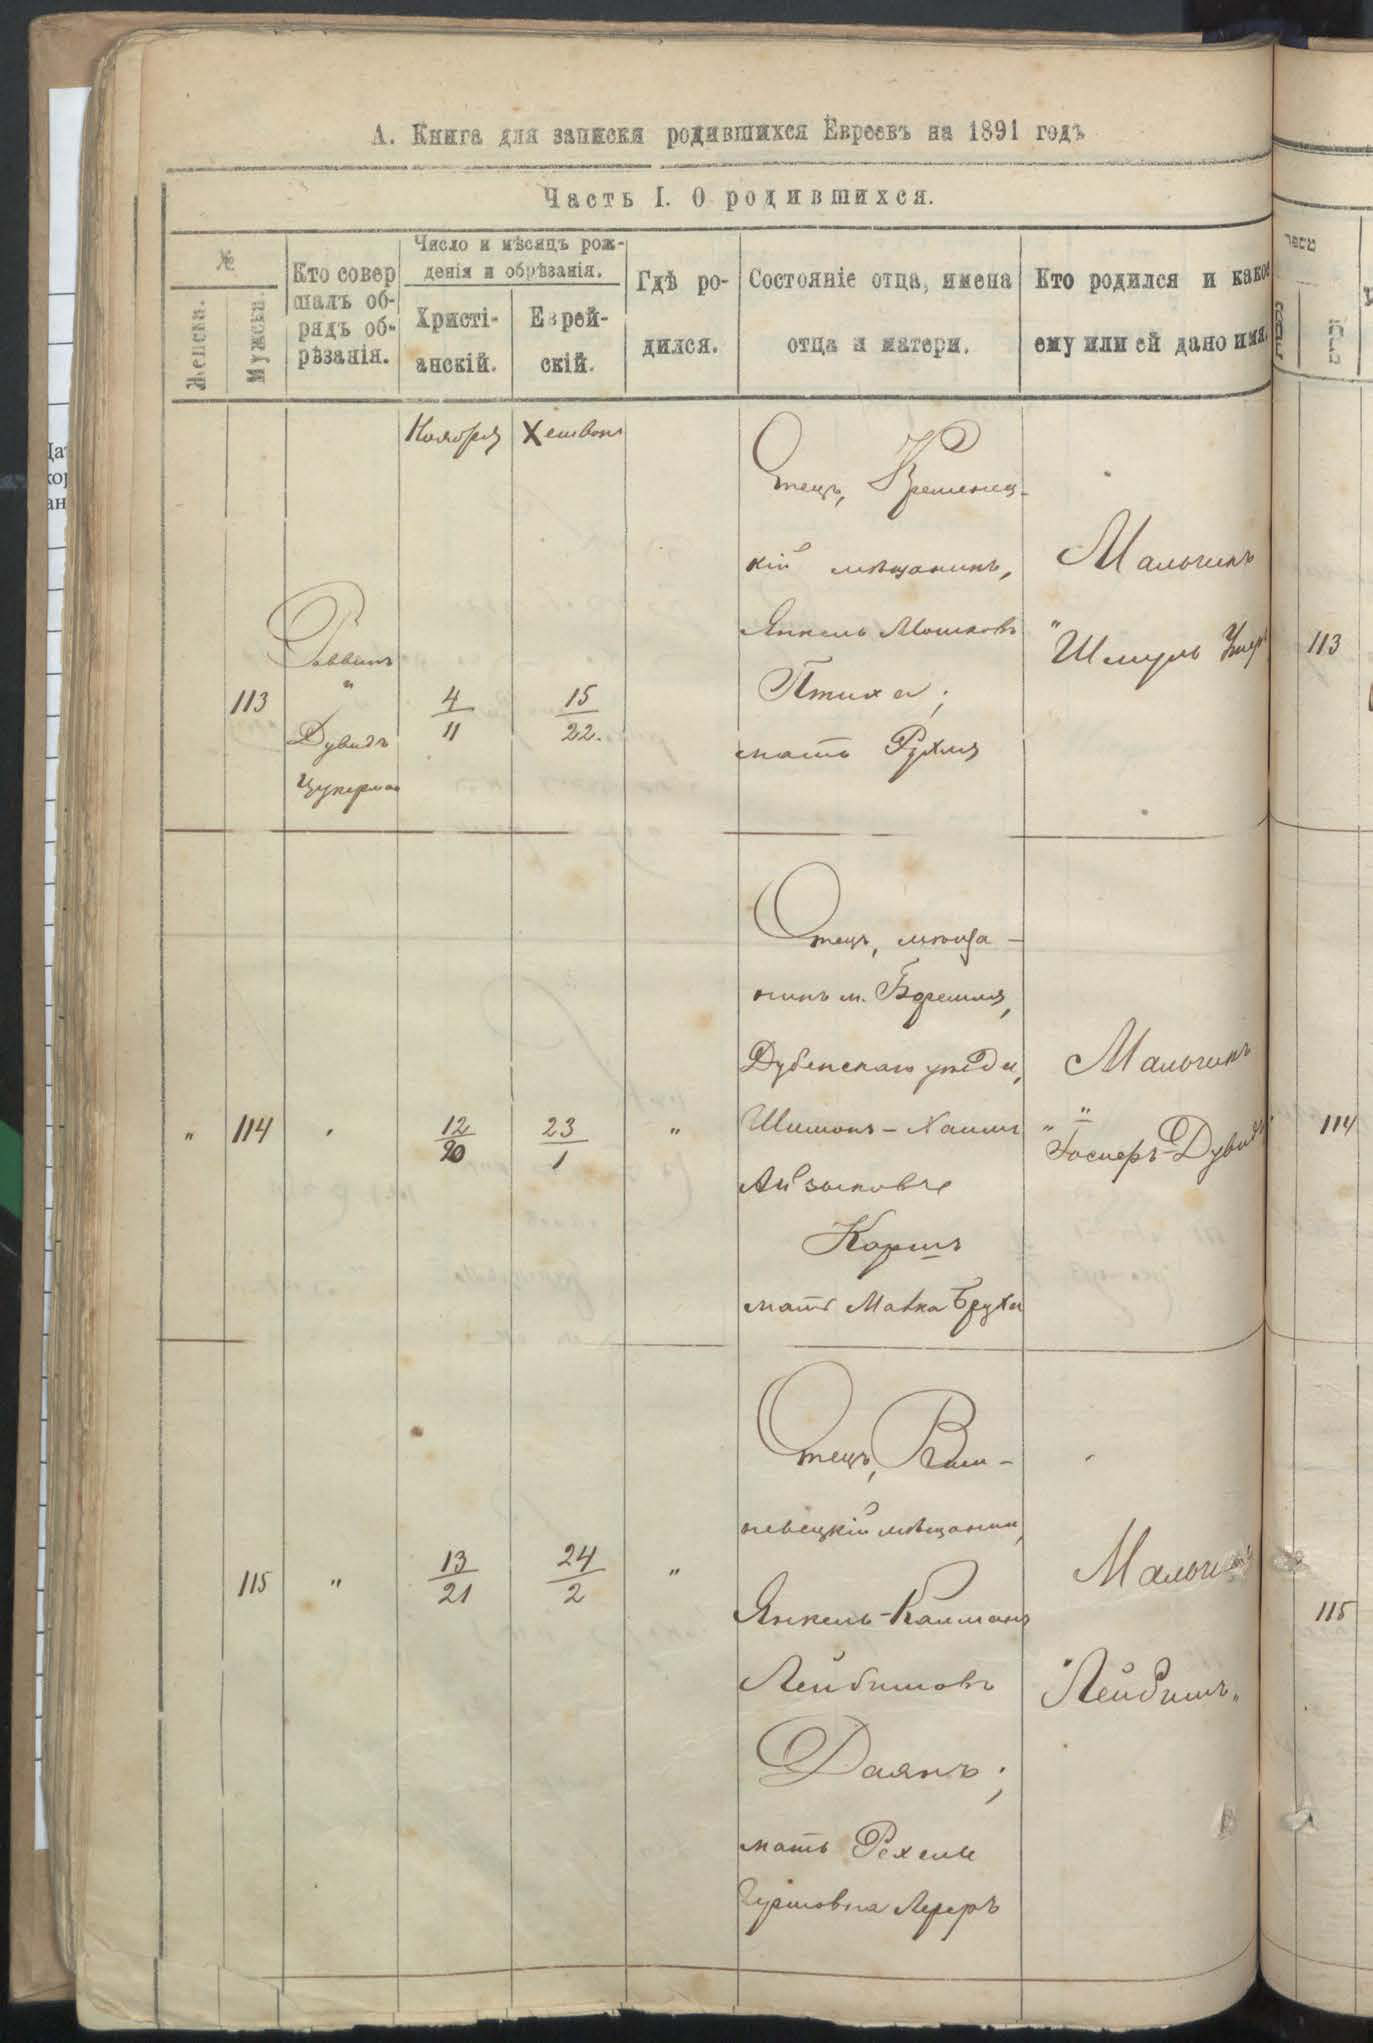 А. Книга для записки родившихся Евреевъ на 1891 годъ
Часть I. О родившихся.
№
Женска.
Мужска.
Кто совер
шалъ об-
рядъ об-
рѣзанія.
Число и мѣсяцъ рож-
денія и обрѣзанія.
Христі-
анскій.
Еврей-
скій.
Гдѣ ро-
дился.
Состояніе отца, имена
отца и матери.
Кто родился и какое
ему или ей дано имя.
מספר
Ноября
Хешвон
113
Раввинъ
"
Дувидъ
Цукерман
4
11
15
22.
Отецъ, Кременец-
кій мѣщанинъ,
Янкель Мошковъ
Птиха;
мать Рухля
Мальчикъ
"Шмуль
113
"
114
"
12
20
23
1
"
Отецъ, мѣща-
нинъ м. Боремля,
Дубенскаго уѣзда,
Шимонъ-Хаимъ
Айзыковъ
Коршъ
мать Малка Бруха
Мальчикъ
"
"Іосперъ-Дувидъ
114
115
"
13
21
24
2
"
Отецъ, Виш-
невецкій мѣщанин,
Янкель-Калманъ
Лейбишовъ
Даянъ;
мать Рехель
Гершовна Лереръ
Мальчикъ
"Лейбишъ"
115